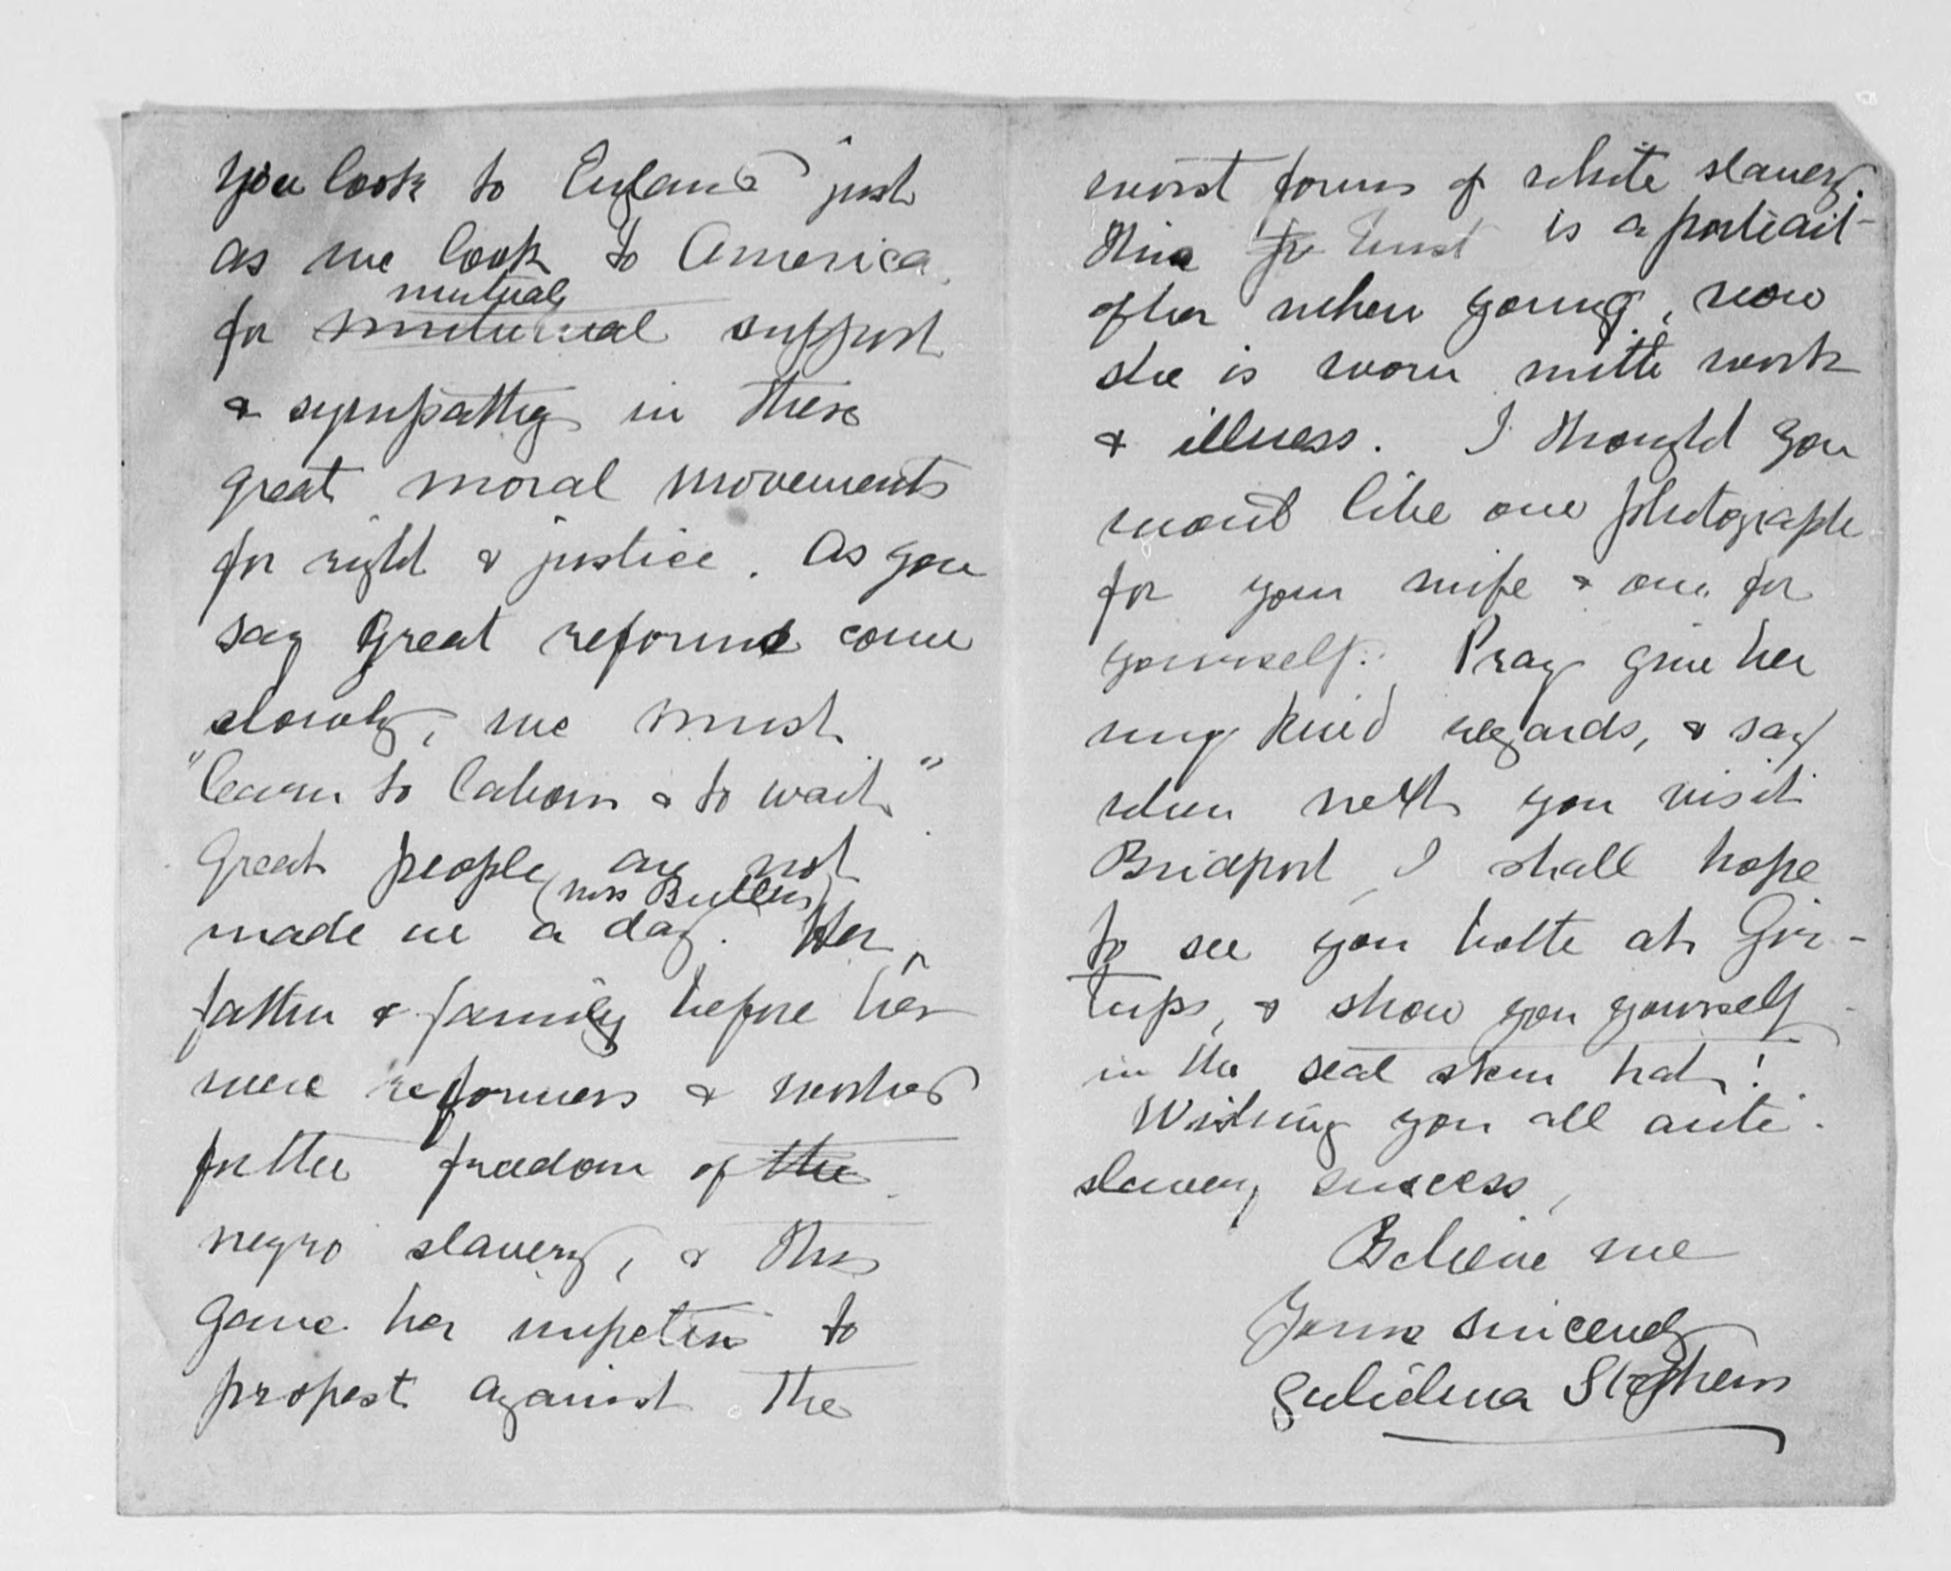 you look to England just
as we look to America
mutual
for mutuual support
& sympathy in these
great moral movements
for right & justice. As you
say Great reforms come
slowly, we must
"learn to labour & to wait"
Great people are not
(Mrs Butlers)
made in a day. Her
father & family before her
were reformers & worked
for the freedom of the
negro slavery, & this
gave her impetus to
propest against the
worst forms of white slavery.
This is a portrait
of her when young, now
she is worn with work
& illness. I thought you
would like one photograph
for your wife & one for
yourself. Pray give her
my kind regards, & say
when next you visit
Bridport, I shall hope
to see you both at Gir-
tups, & show you yourself
in the seal skin hat!
Wishing you all anti-
slavery success,
Believe me
Yours sincerely
Gulielma Stephens